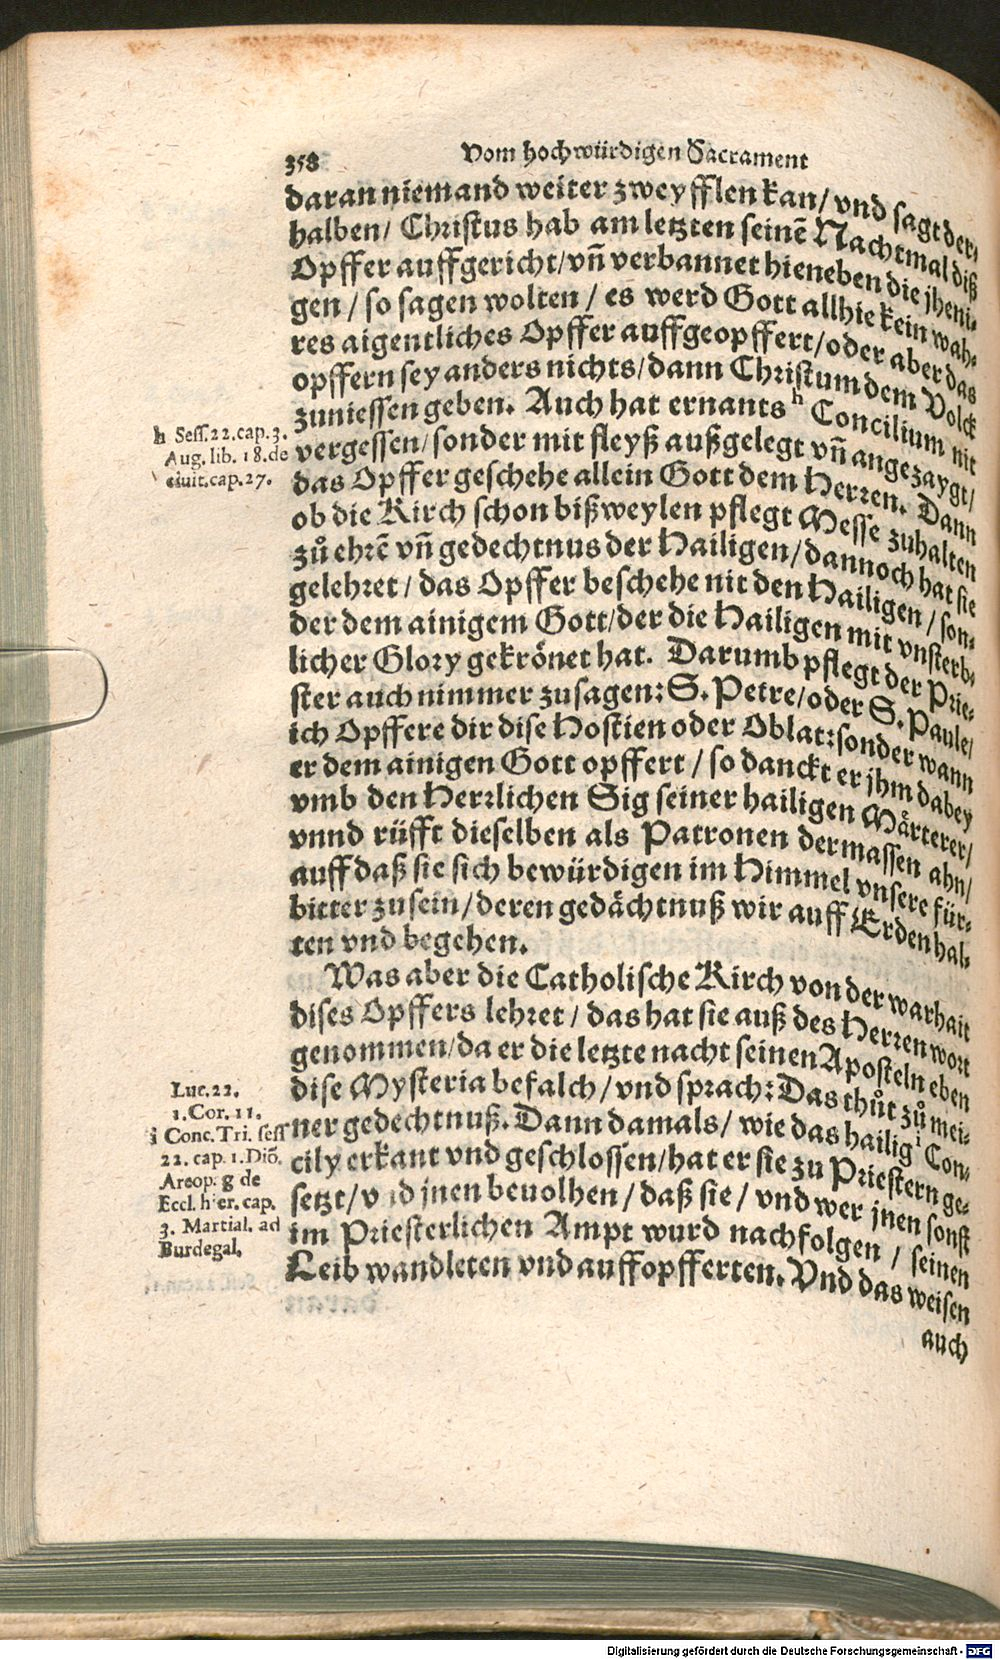 358 Vom hochwürdigen Sacrament
daran niemand weiter zweyfflen kan/ vnd sagt der-
halben/ Christus hab am letzten seinē Nachtmal diß
Opffer auffgericht/ vñ verbannet hieneben die jheni-
gen / so sagen wolten / es werd Gott allhie kein wah-
res aigentliches Opffer auffgeopffert/ oder aber das
opffern sey anders nichts/ dann Christum dem Volck
zuniessen geben. Auch hat ernants ʰ Concilium nit
vergessen/ sonder mit fleyß außgelegt vñ angezaygt/
das Opffer geschehe allein Gott dem Herren. Dann
ob die Kirch schon bißweylen pflegt Messe zuhalten
zů ehrē vñ gedechtnus der Hailigen/ dannoch hat sie
gelehret / das Opffer beschehe nit den Hailigen / son-
der dem ainigem Gott/ der die Hailigen mit vnsterb-
licher Glory gekrönet hat. Darumb pflegt der Prie-
ster auch nimmer zusagen: S. Petre/ oder S. Paule/
ich Opffere dir dise Hostien oder Oblat: sonder wann
er dem ainigen Gott opffert / so danckt er jhm dabey
vmb den Herrlichen Sig seiner hailigen Märterer/
vnnd rüfft dieselben als Patronen dermassen ahn/
auff daß sie sich bewürdigen im Himmel vnsere für-
bitter zusein/ deren gedächtnuß wir auff Erden hal-
ten vnd begehen.
Was aber die Catholische Kirch von der warhait
dises Opffers lehret / das hat sie auß des Herren wort
genommen/ da er die letzte nacht seinen Aposteln eben
dise Mysteria befalch/ vnd sprach: Das thůt zů mei-
ner gedechtnuß. Dann damals/ wie das hailig ⁱ Con-
cily erkant vnd geschlossen/ hat er sie zu Priestern ge-
setzt/ vnd jnen beuolhen / daß sie / vnd wer jnen sonst
im Priesterlichen Ampt wurd nachfolgen / seinen
Leib wandleten vnd auffopfferten. Vnd das weisen
auch
h Sess. 22. cap. 3.
Aug. lib. 18. de
ciuit. cap. 27.
Luc. 22.
1. Cor. 11.
i Conc. Tri. sess
22. cap. 1. Diō.
Areop. 8 de
Eccl. hier. cap.
3. Martial. ad
Burdegal.
Digitalisierung gefördert durch die Deutsche Forschungsgemeinschaft - DFG